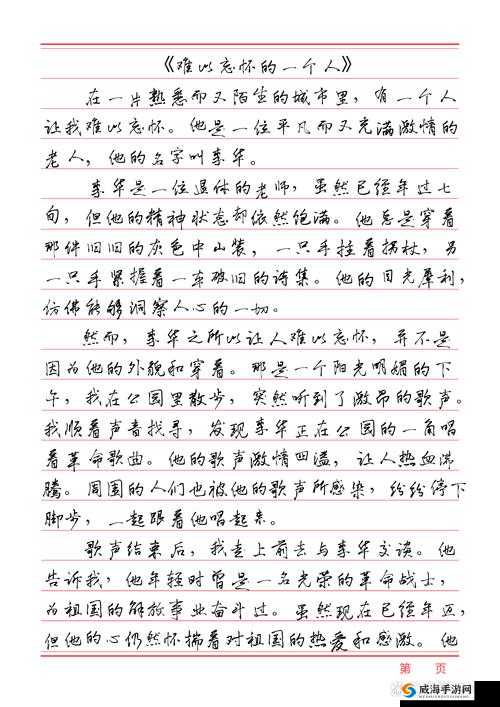 《难以忘怀的一个人》
在一片熟悉而又陌生的城市里，有一个人
让我难以忘怀。他是一位平凡而又充满激情的
老人，他的名字叫李华。
李华是一位退休的老师，虽然已经年过七
旬，但他的精神状态却依然饱满。他总是穿着
那件旧旧的灰色中山装，一只手拄着拐杖，另
一只手紧握着一本破旧的诗集。他的目光犀利，
仿佛能够洞察人心的一切。
然而，李华之所以让人难以忘怀，并不是
因为他的外貌和穿着。那是一个阳光明媚的下
午，我在公园里散步，突然听到了激昂的歌声。
我顺着声音找寻，发现李华正在公园的一角唱
着革命歌曲。他的歌声激情四溢，让人热血沸
腾。周围的人们也被他的歌声所感染，纷纷停下
脚步，一起跟着他唱起来。
歌声结束后，我走上前去与李华交谈。他
告诉我，他年轻时曾是一名光荣的革命战士，
为祖国的解放事业奋斗过。虽然现在已经年迈，
但他的心仍然怀揣着对祖国的热爱和感激。他
第 页
威海手游网